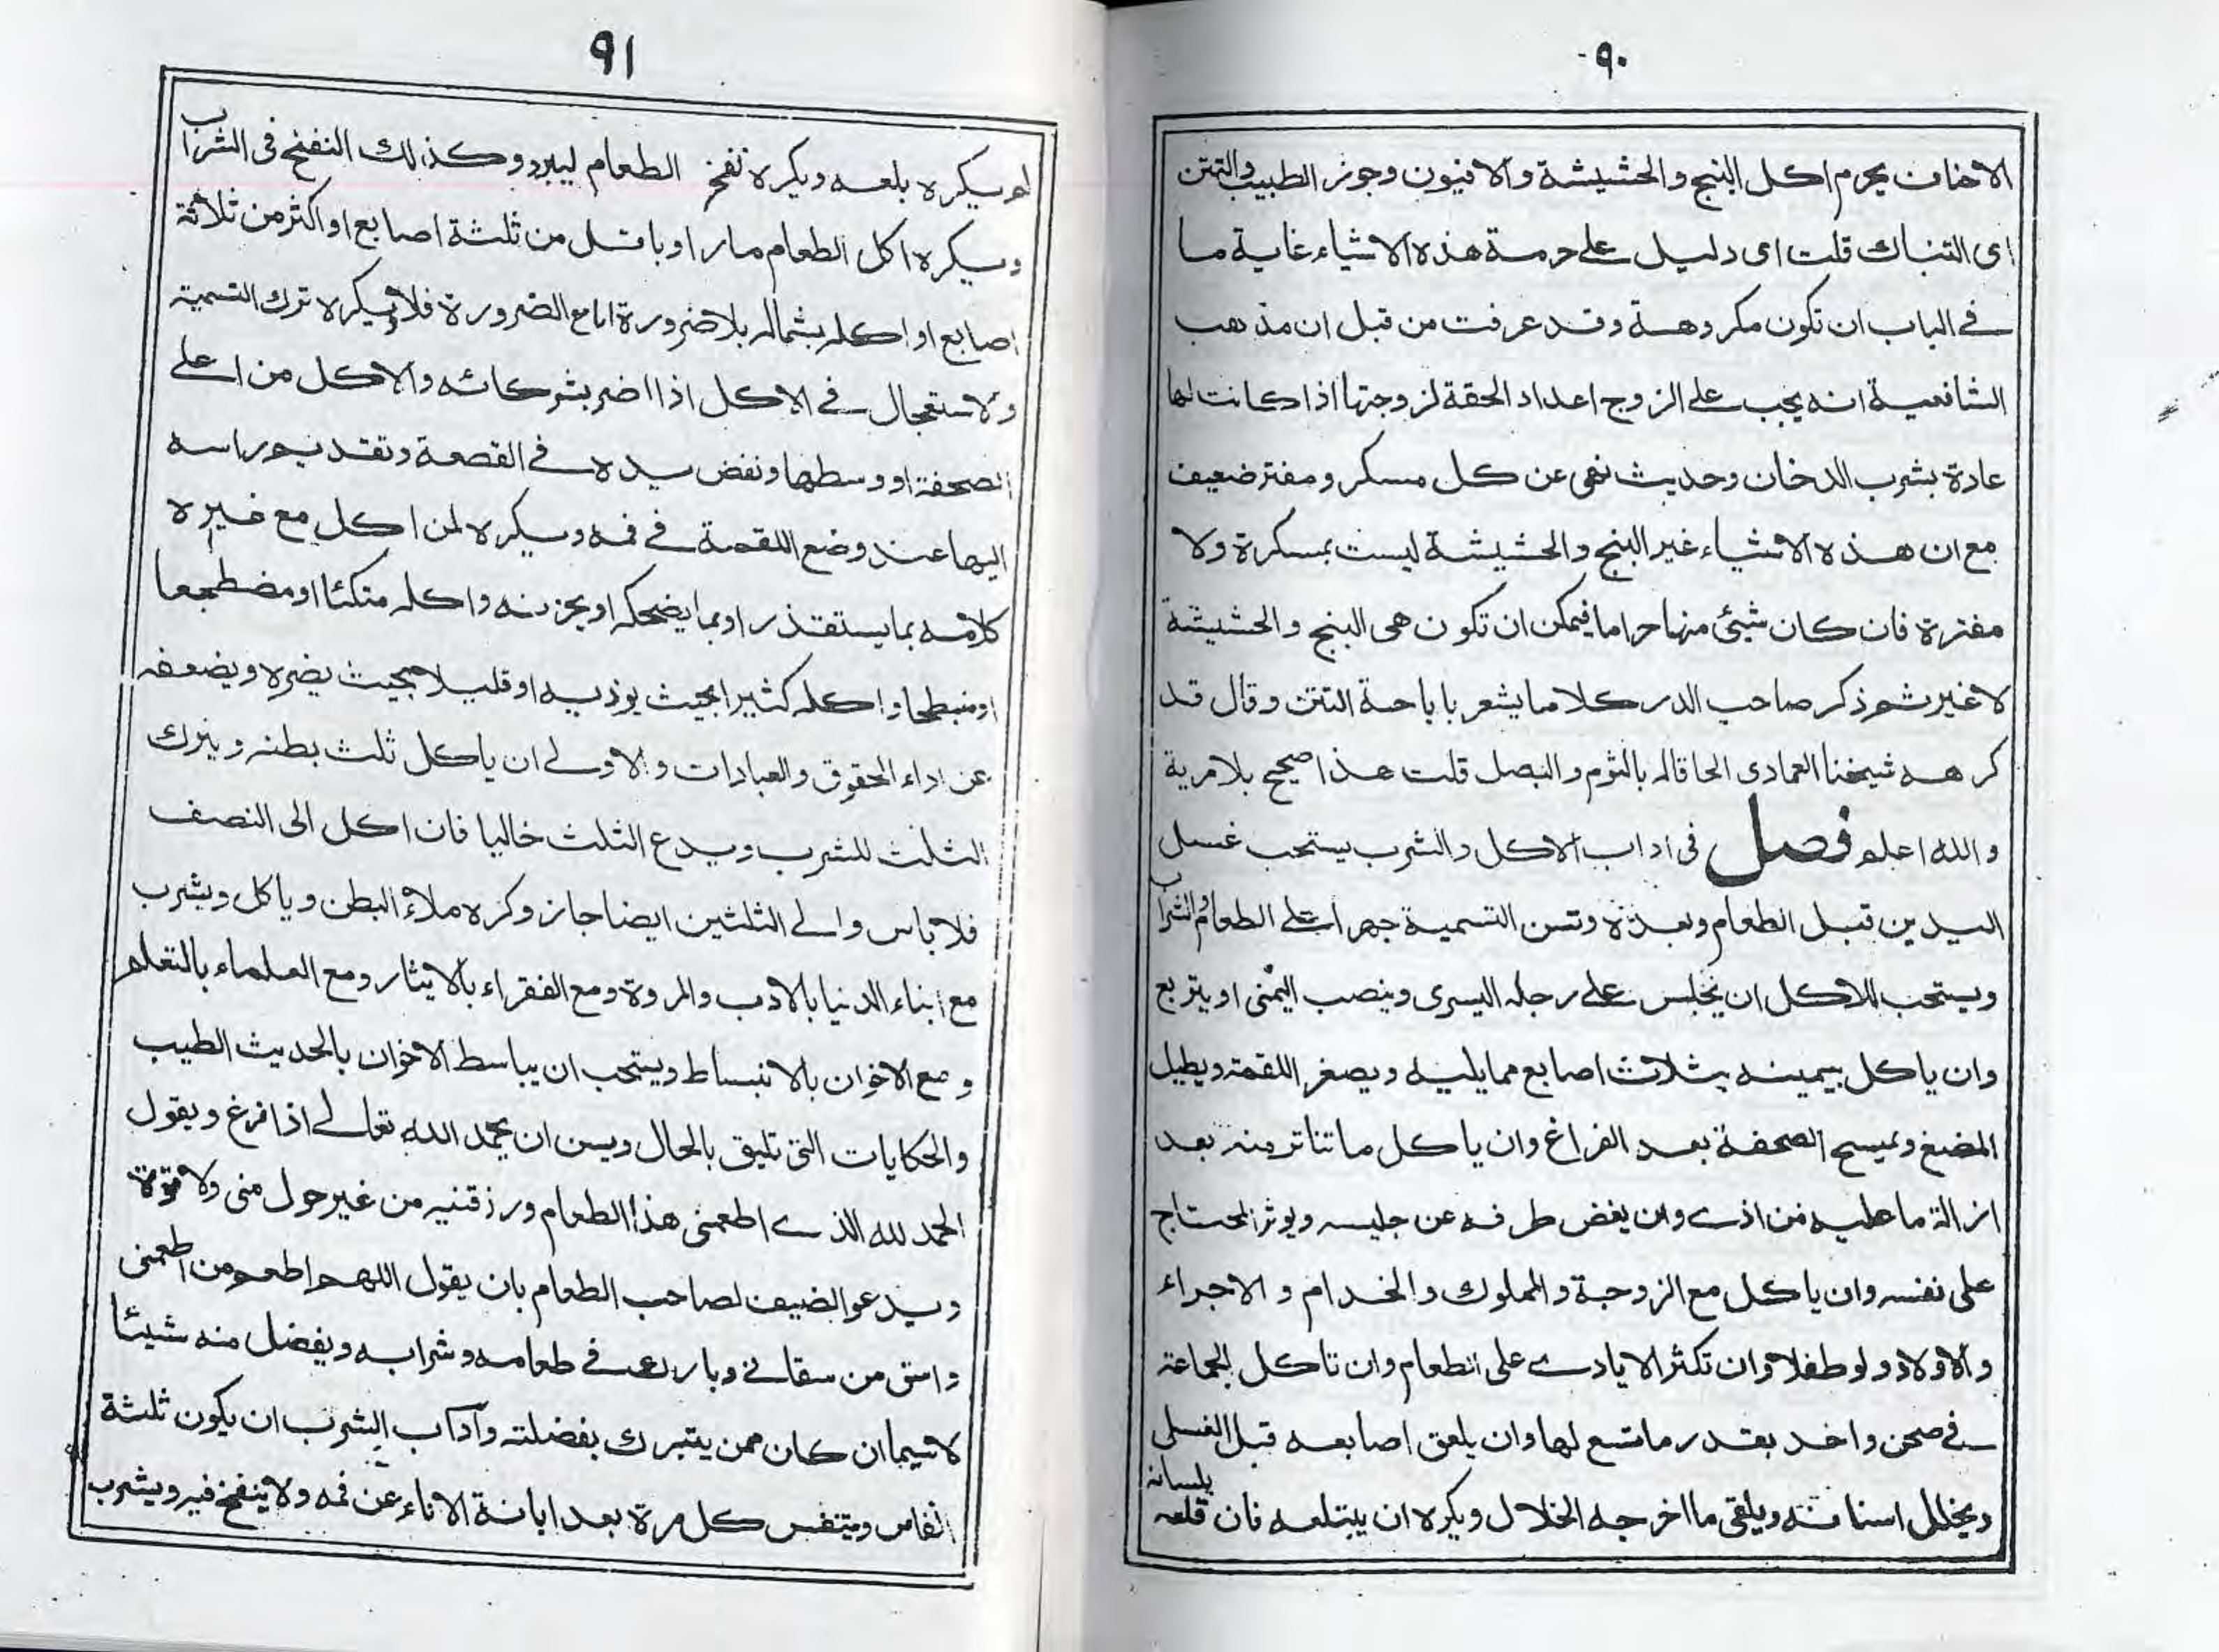 ٩٠
الاحناف يحرم اكل البنج والحشيشة والافيون وجوز الطيب والتتن
اى التنباك قلت اى دليل على حرمة هذه الاشياء غاية ما
فى الباب ان تكون مكروهة وقد عرفت من قبل ان مذهب
الشافعية انه يجب على الزوج اعداد الحقة لزوجتها اذا كانت لها
عادة بشرب الدخان وحديث نهى عن كل مسكر ومفتر ضعيف
مع ان هذه الاشياء غير البنج والحشيشة ليست بمسكرة ولا
مفترة فان كان شيئى منها حراما فيمكن ان تكون هى البنج والحشيشة
لا غير ثم ذكر صاحب الدر كلاما يشعر باباحة التتن وقال قد
كرهه شيخنا العمادى الحاقا له بالثوم والبصل قلت هذا صحيح بلا مرية
والله اعلم فصل فى اداب الاكل والشرب يستحب غسل
اليدين قبل الطعام وبعده وتسن التسمية جهرا على الطعام والشراب
ويستحب للاكل ان يجلس على رجله اليسرى وينصب اليمنى او يتربع
وان ياكل بيمينه بثلاث اصابع مما يليه ويصغر اللقمة ويطيل
المضغ ويمسح الصحفة بعد الفراغ وان ياكل ما تناثر منه بعد
ازالة ما عليه من اذى وان يغض طرفه عن جليسه ويوثر المحتاج
على نفسه وان ياكل مع الزوجة والمملوك والخدام والاجراء
والاولاد ولو طفلا وان تكثر الايادى على الطعام وان تاكل الجماعة
فى صحن واحد بقدر ما تسع لها وان يلعق اصابعه قبل الغسل
ويخلل اسنانه ويلقى ما اخرجه الخلال ويكره ان يبتلعه فان قلعه بلسانه
٩١
لم يكره بلعه ويكره نفخ الطعام ليبرد وكذلك النفخ فى الشراب
ويكره اكل الطعام حارا او باقل من ثلثة اصابع او اكثر من ثلاثة
اصابع او اكله بشماله بلا ضرورة اما مع الضرورة فلا ويكره ترك التسمية
والاستعجال فى الاكل اذا اضر بشركائه والاكل من اعلى
الصحفة او وسطها ونفض يده فى القصعة وتقديم راسه
اليها عند وضع اللقمة فى فمه ويكره لمن اكل مع غيره
كلامه بما يستقذر او بما يضحكه او يحزنه واكله متكئا او مضطجعا
او منبطحا واكله كثيرا بحيث يوذيه او قليلا بحيث يضره ويضعفه
عن اداء الحقوق والعبادات والاولى ان ياكل ثلث بطنه ويترك
الثلث للشرب ويدع الثلث خاليا فان اكل الى النصف
فلا باس والى الثلثين ايضا جاز وكره ملاء البطن وياكل ويشرب
مع ابناء الدنيا بالادب والمروة ومع الفقراء بالايثار ومع العلماء بالتعلم
ومع الاخوان بالانبساط ويستحب ان يباسط الاخوان بالحديث الطيب
والحكايات التى تليق بالحال ويسن ان يحمد الله تعالى اذا فرغ ويقول
الحمد لله الذى اطعمنى هذا الطعام ورزقنيه من غير حول منى ولا قوة
ويدعو الضيف لصاحب الطعام بان يقول اللهم اطعم من اطعمنى
واسق من سقانى وبارك فى طعامه وشرابه ويفضل منه شيئا
لا سيما ان كان ممن يتبرك بفضلته وآداب الشرب ان يكون ثلثة
انفاس ويتنفس كل مرة بعد ابانة الاناء عن فمه ولا ينفخ فيه ويشرب